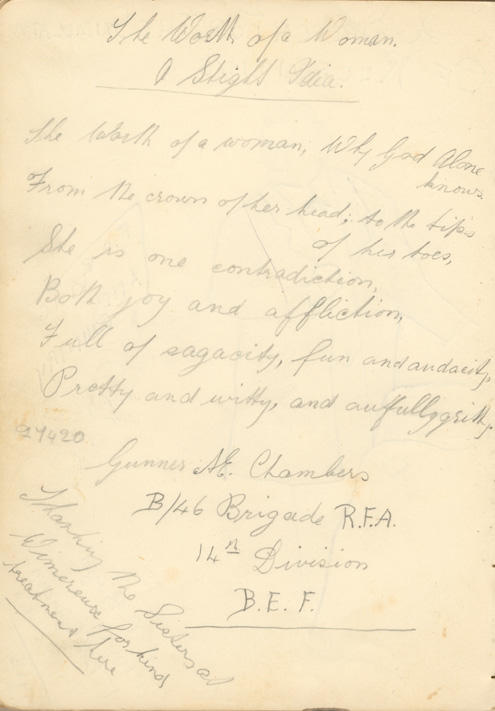 The Worth of a Woman.
A Slight Idia.
The Worth of a woman, Why God Alone
knows
From the crown of her head; to the tips
of her toes,
She is one contradiction,
Both joy and affliction,
Full of sagacity, fun and audacity,
Pretty and witty, and aufully gritty.
97420
Gunner A.E. Chambers
B/46 Brigade R.F.A.
14th Division
B.E.F.
Thanking the Sisters at
Wimereux for kind
treatment here